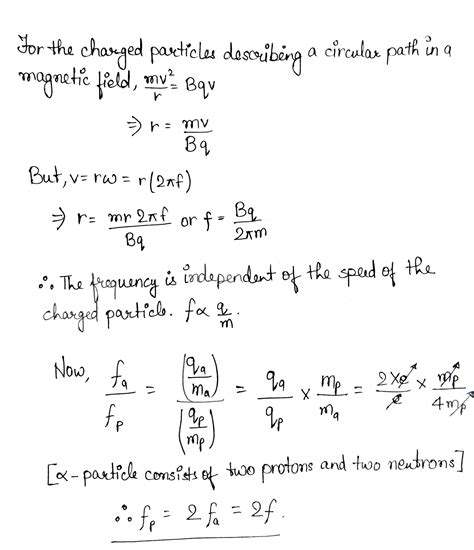 For the charged particles describing a circular path in a
magnetic field, mv²/r = Bqv
⇒ r = mv/Bq
But, v = rω = r(2πf)
⇒ r = mr2πf/Bq or f = Bq/2πm
∴ The frequency is independent of the speed of the
charged particle. f∝ q/m.
Now, fₐ/fₚ = (qₐ/mₐ)/(qₚ/mₚ) = qₐ/qₚ × mₚ/mₐ = 2×e/e × mₚ/4mₚ
[α-particle consists of two protons and two neutrons]
∴ fₚ = 2fₐ = 2f.